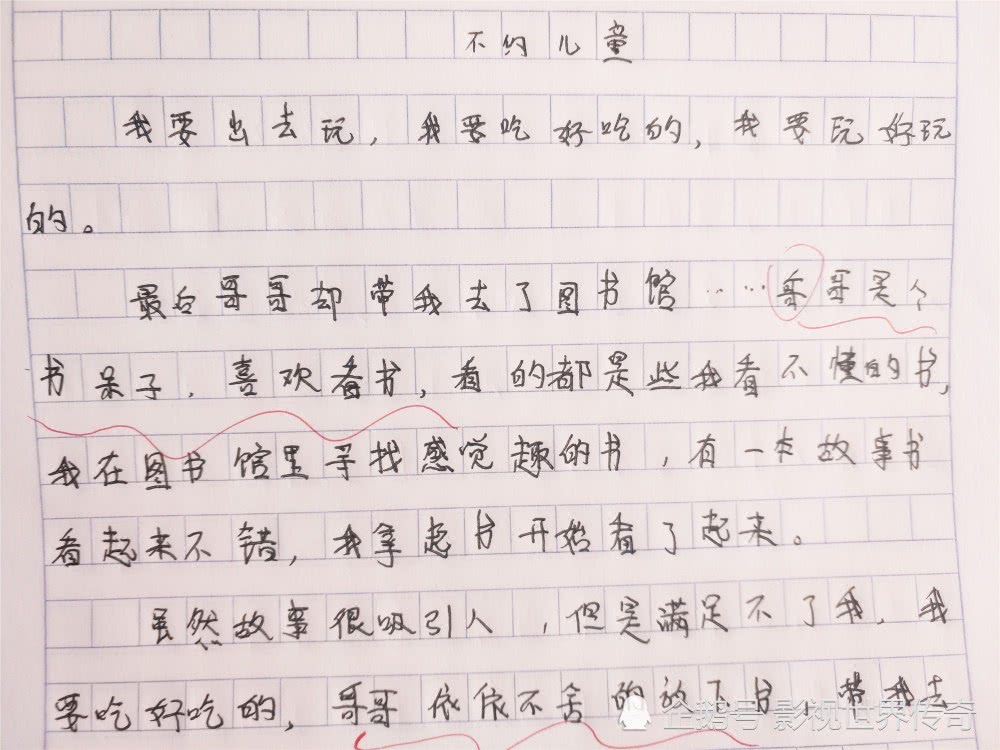 不约儿童
我要出去玩,我要吃好吃的,我要玩好玩
的。
最后哥哥却带我去了图书馆……哥哥是个
书呆子,喜欢看书,看的都是些我看不懂的书,
我在图书馆里寻找感觉趣的书,有一本故事书
看起来不错,我拿起书开始看了起来。
虽然故事很吸引人,但是满足不了我,我
要吃好吃的,哥哥依依不舍的放下书,带我去
企鹅号 影视世界传奇